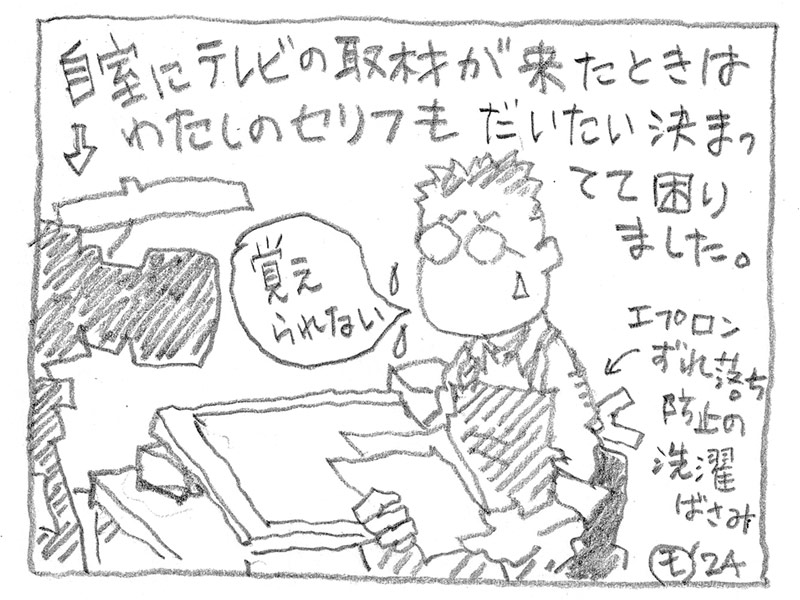 自室にテレビの取材が来たときは
わたしのセリフもだいたい決まっ
てて困り
ました。
覚え
られない
エプロン
ずれ落ち
防止の
洗濯
ばさみ
モ '24